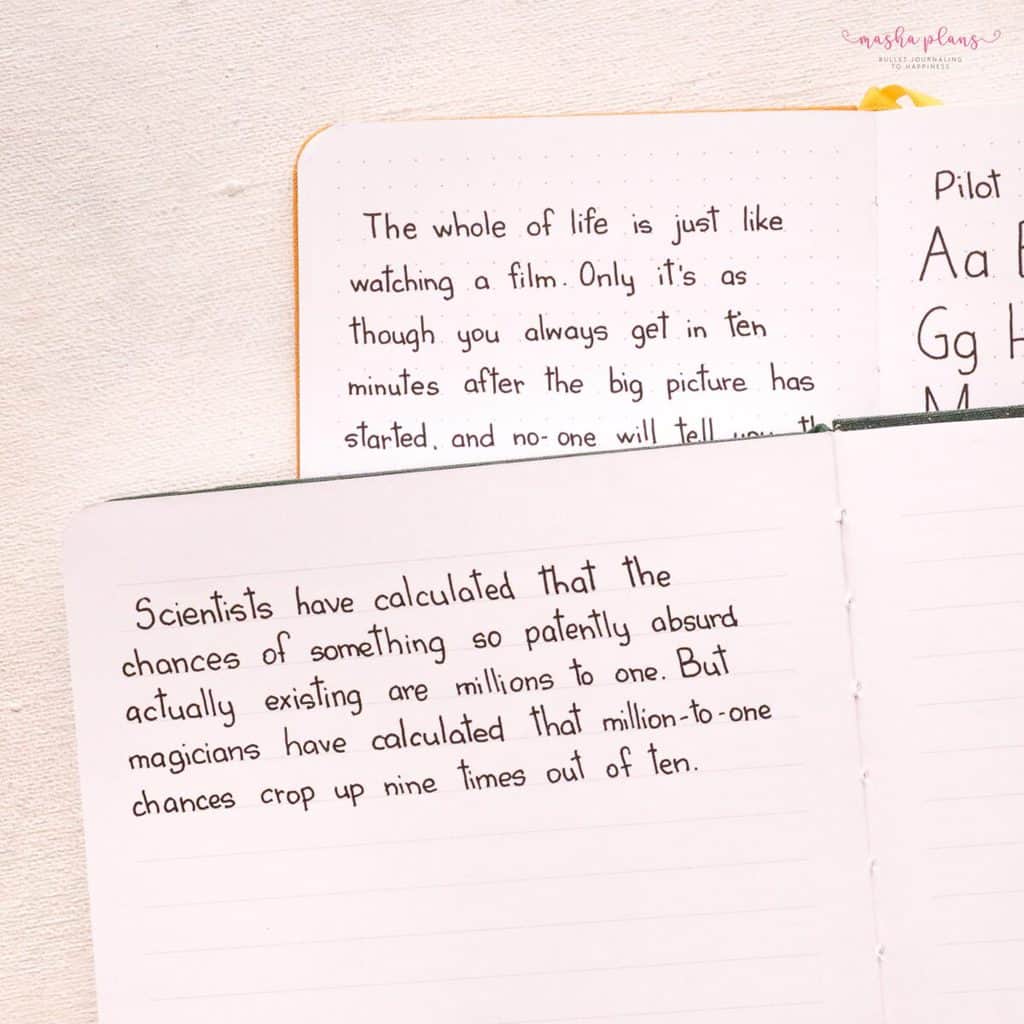 masha plans
BULLET JOURNALING
TO HAPPINESS
The whole of life is just like
watching a film. Only it's as
though you always get in ten
minutes after the big picture has
started, and no-one will tell
Pilot
Aa
Gg
M
Scientists have calculated that the
chances of something so patently absurd
actually existing are millions to one. But
magicians have calculated that million-to-one
chances crop up nine times out of ten.